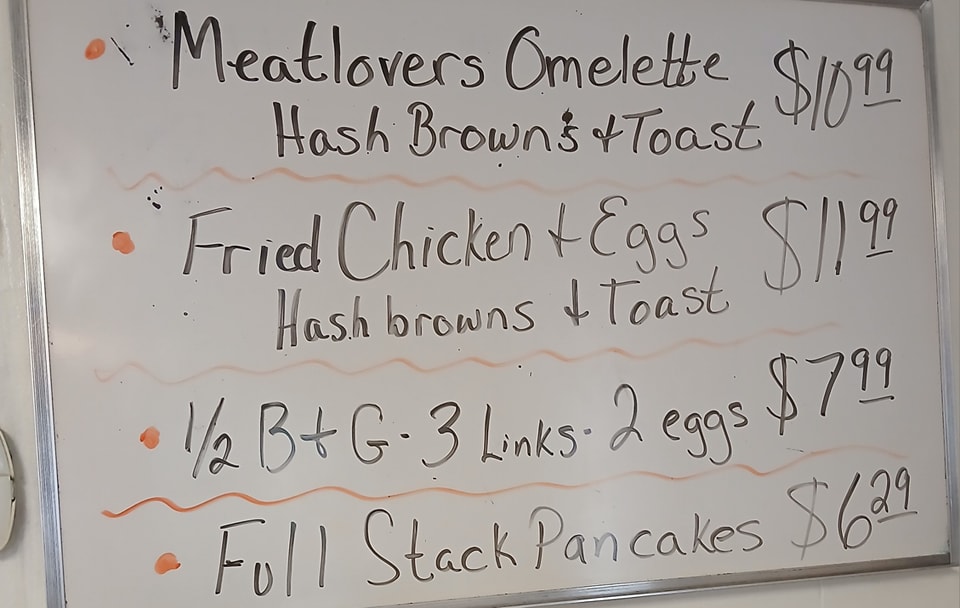 Meatlovers Omelette $10.99
Hash Browns + Toast
Fried Chicken + Eggs $11.99
Hash browns + Toast
1/2 B + G - 3 Links - 2 eggs $7.99
Full Stack Pancakes $6.29